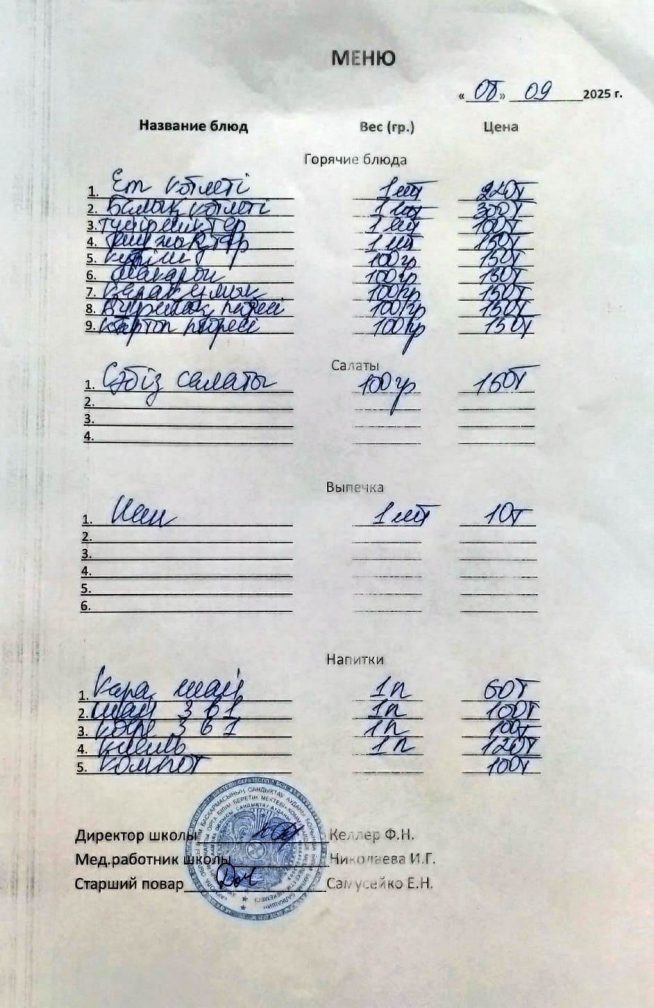 МЕНЮ
«08» 09 2025 г.
Название блюд Вес (гр.) Цена
Горячие блюда
1. Ет котлеті 1 шт 220т
2. Балық котлеті 1 шт 300т
3. 1 шт 100т
4. 1 шт 150т
5. күріш 100гр 150т
6. макарон 100гр 150т
7. Қарақұмық 100гр 150т
8. пюресі 100гр 150т
9. Картоп пюресі 100гр 150т
Салаты
1. Сәбіз салаты 100гр 160т
2.
3.
4.
Выпечка
1. Нан 1 шт 10т
2.
3.
4.
5.
6.
Напитки
1. Қара шай 1п 60т
2. шай 3 в 1 1п 100т
3. кофе 3 в 1 1п 100т
4. кисель 1п 120т
5. компот 100т
Директор школы Келлер Ф.Н.
Мед.работник школы Николаева И.Г.
Старший повар Самусейко Е.Н.